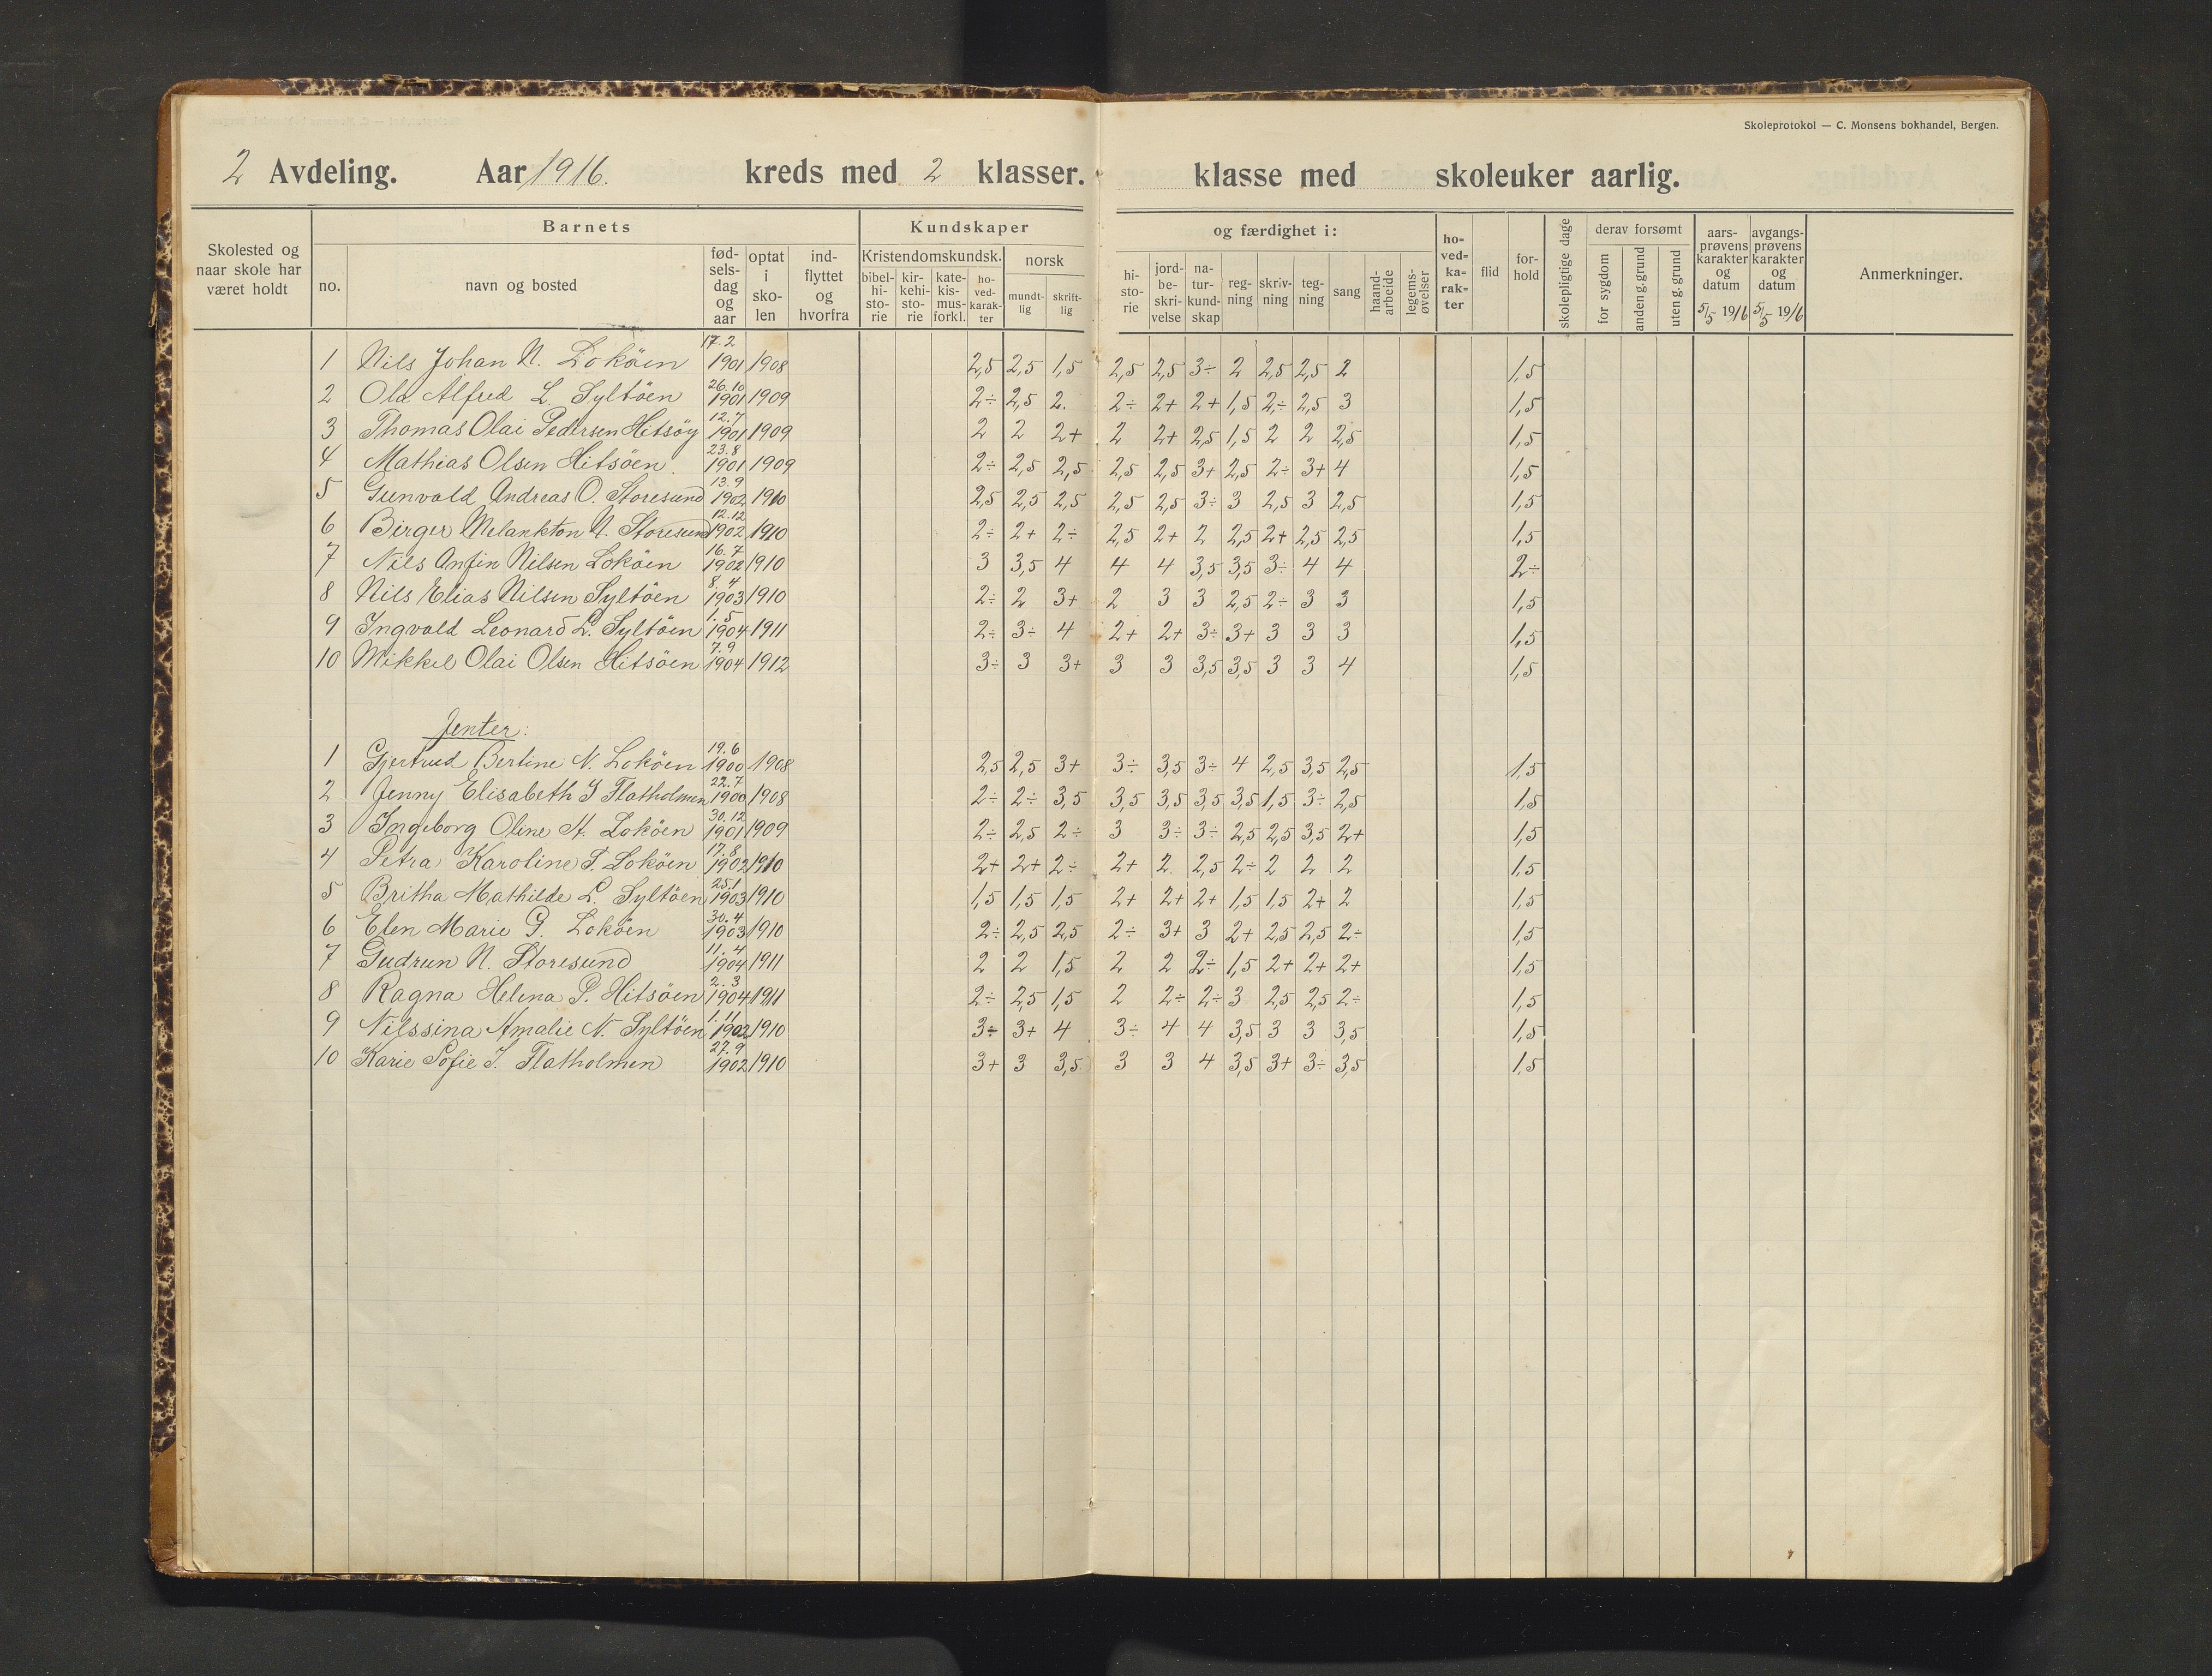 Skoleprotokol — C. Monsens bokhandel, Bergen.
2 Avdeling. Aar 1916. kreds med 2 klasser. klasse med skoleuker aarlig.
Skolested og naar skole har været holdt
Barnets
no.
navn og bosted
fød-selsdag og aar
optat i sko-len
ind-flyttet og hvorfra
Kundskaper
Kristendomskundsk.
bibel-hi-sto-rie
kir-kehi-sto-rie
kate-kis-mus-forkl.
ho-ved-karak-ter
norsk
mundt-lig
skrift-lig
og færdighet i:
hi-sto-rie
jord-be-skri-velse
na-tur-kund-skap
reg-ning
skriv-ning
teg-ning
sang
haand-arbeide
legems-øvelser
ho-ved-ka-rak-ter
flid
for-hold
skolepligtige dage
derav forsømt
for sygdom
anden g. grund
uten g. grund
aars-prøvens karakter og datum 5/5 1916
avgangs-prøvens karakter og datum 5/5 1916
Anmerkninger.
1 Nils Johan N. Loköen 17.2 1901 1908 2,5 2,5 1,5 2,5 2,5 3÷ 2 2,5 2,5 2 1,5
2 Ola Alfred L. Syltöen 26.10 1901 1909 2÷ 2,5 2. 2÷ 2+ 2+ 1,5 2÷ 2,5 3 1,5
3 Thomas Olai Pedersen Hitsöy 12.7 1901 1909 2 2 2+ 2 2+ 2,5 1,5 2 2 2,5 1,5
4 Mathias Olsen Hitsöen. 23.8 1901 1909 2÷ 2,5 2,5 2,5 2,5 3+ 2,5 2÷ 3+ 4 1,5
5 Gunvald Andreas O. Storesund 13.9 1902 1910 2,5 2,5 2,5 2,5 2,5 3÷ 3 2,5 3 2,5 1,5
6 Birger Melankton N. Storesund 12.12 1902 1910 2÷ 2+ 2÷ 2,5 2+ 2 2,5 2+ 2,5 2,5 1,5
7 Nils Anfin Nilsen Loköen 16.7 1902 1910 3 3,5 4 4 4 3,5 3,5 3÷ 4 4 2÷
8 Nils Elias Nilsen Syltöen 8.4 1903 1910 2÷ 2 3+ 2 3 3 2,5 2÷ 3 3 1,5
9 Ingvald Leonard L. Syltöen 1.5 1904 1911 2÷ 3÷ 4 2+ 2+ 3÷ 3+ 3 3 3 1,5
10 Mikkel Olai Olsen Hitsöen 7.9 1904 1912 3÷ 3 3+ 3 3 3,5 3,5 3 3 4 1,5
Jenter:
1 Gjertrud Bertine N. Loköen 19.6 1900 1908 2,5 2,5 3+ 3÷ 3,5 3÷ 4 2,5 3,5 2,5 1,5
2 Jenny Elisabeth I Flatholmen 22.7 1900 1908 2÷ 2÷ 3,5 3,5 3,5 3,5 3,5 1,5 3÷ 2,5 1,5
3 Ingeborg Oline H. Loköen 30.12 1901 1909 2÷ 2,5 2÷ 3 3÷ 3÷ 2,5 2,5 3,5 2+ 1,5
4 Petra Karoline T. Loköen 17.8 1902 1910 2+ 2+ 2÷ 2+ 2. 2,5 2÷ 2 2 2 1,5
5 Britha Mathilde L. Syltöen 25.1 1903 1910 1,5 1,5 1,5 2+ 2+ 2+ 1,5 1,5 2+ 2 1,5
6 Elen Marie G. Loköen 30.4 1903 1910 2÷ 2,5 2,5 2÷ 3+ 3 2+ 2,5 2,5 2÷ 1,5
7 Gudrun N. Storesund 11.4 1904 1911 2 2 1,5 2 2 2÷ 1,5 2+ 2+ 2+ 1,5
8 Ragna Helena P. Hitsöen 2.3 1904 1911 2÷ 2,5 1,5 2 2÷ 2÷ 3 2,5 2,5 2÷ 1,5
9 Nilssina Amalie N. Syltöen 1.11 1902 1910 3÷ 3+ 4 3÷ 4 4 3,5 3 3 3,5 1,5
10 Karie Sofie I. Flatholmen 27.9 1902 1910 3+ 3 3,5 3 3 4 3,5 3+ 3÷ 3,5 1,5